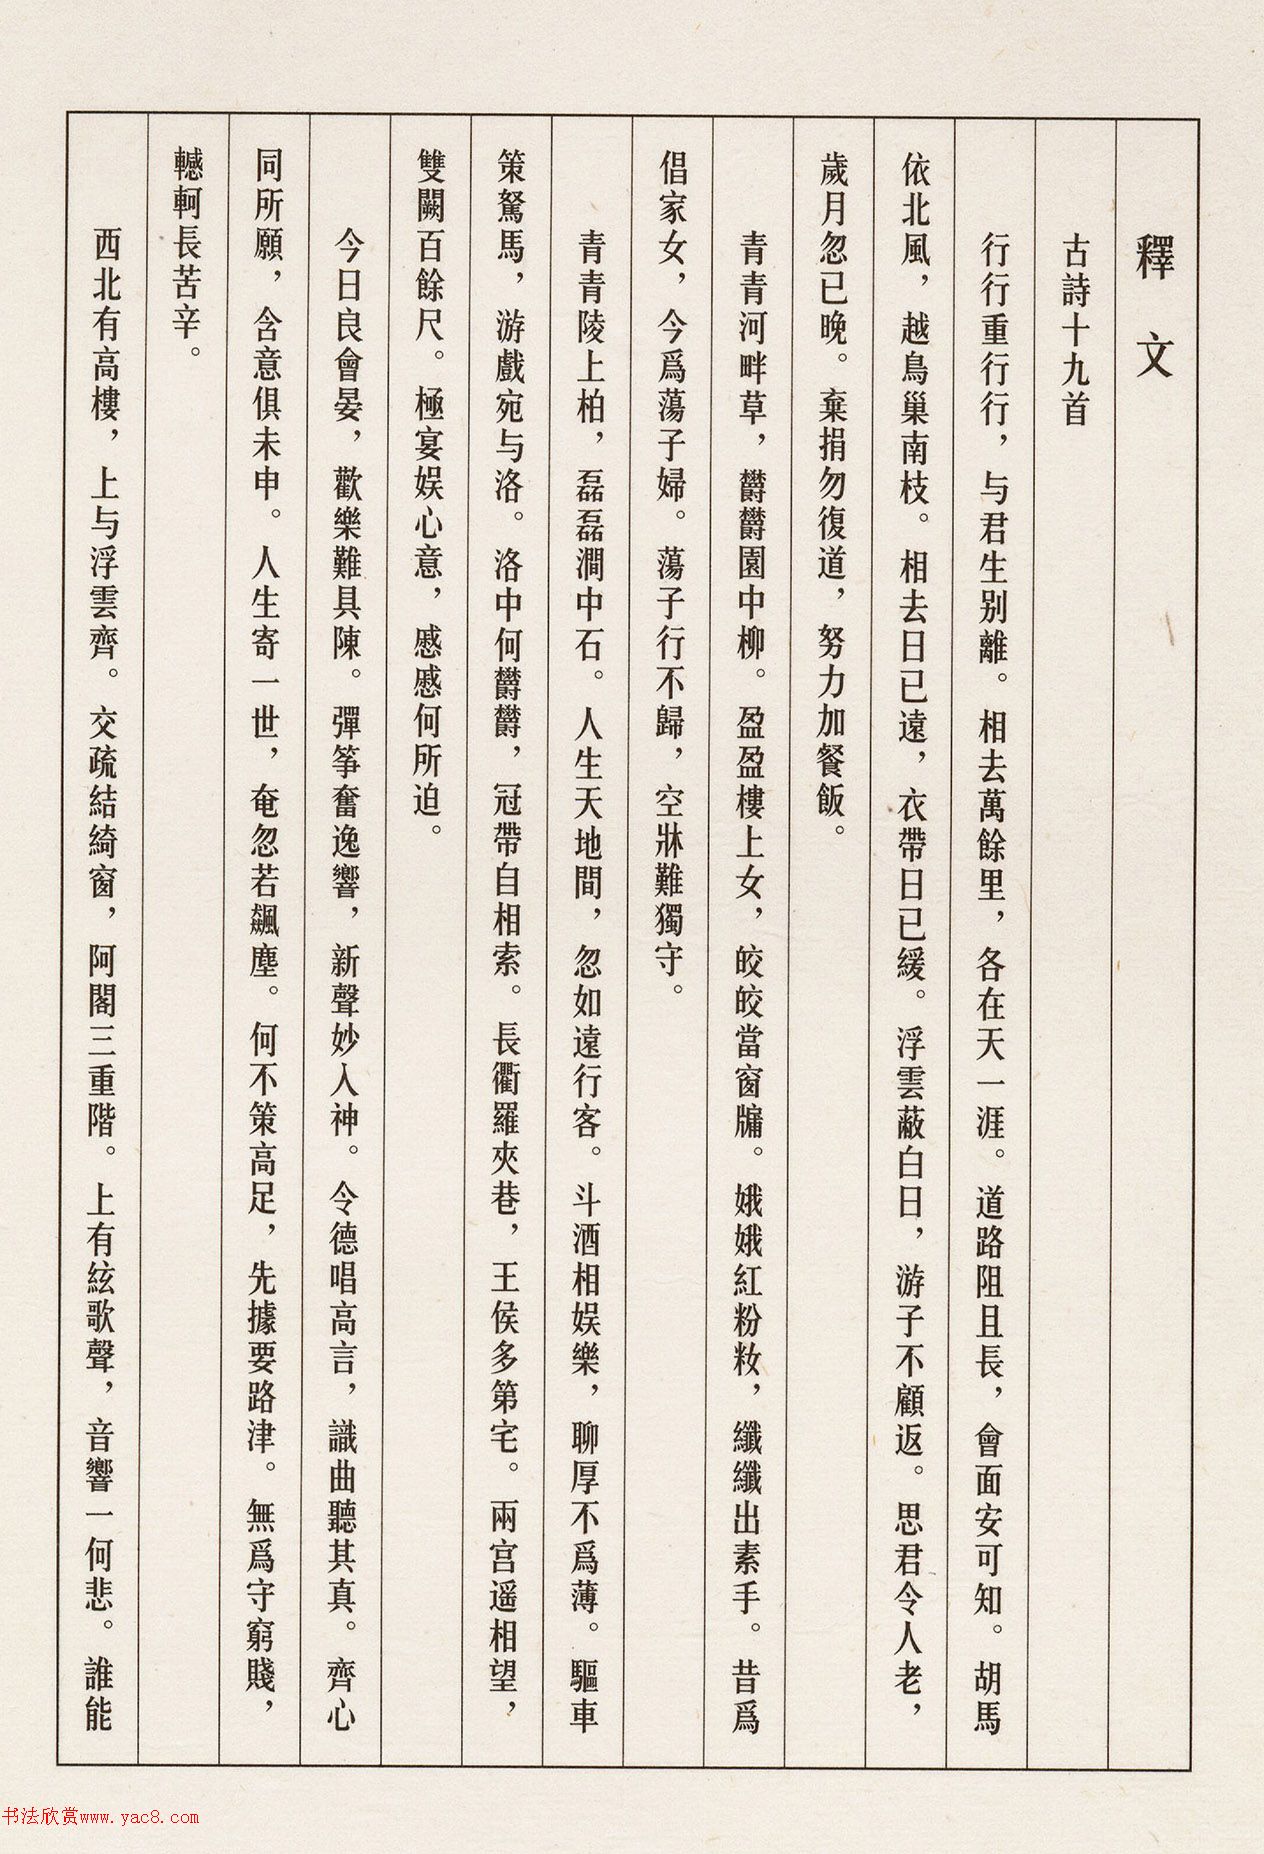 釋文
古詩十九首
行行重行行，与君生别離。相去萬餘里，各在天一涯。道路阻且長，會面安可知。胡馬
依北風，越鳥巢南枝。相去日已遠，衣帶日已緩。浮雲蔽白日，游子不顧返。思君令人老，
歲月忽已晚。棄捐勿復道，努力加餐飯。
青青河畔草，欝欝園中柳。盈盈樓上女，皎皎當窗牖。娥娥紅粉妝，纖纖出素手。昔爲
倡家女，今爲蕩子婦。蕩子行不歸，空牀難獨守。
青青陵上柏，磊磊澗中石。人生天地間，忽如遠行客。斗酒相娱樂，聊厚不爲薄。驅車
策駑馬，游戲宛与洛。洛中何欝欝，冠帶自相索。長衢羅夾巷，王侯多第宅。兩宫遥相望，
雙闕百餘尺。極宴娱心意，慼慼何所迫。
今日良會晏，歡樂難具陳。彈筝奮逸響，新聲妙入神。令德唱高言，識曲聽其真。齊心
同所願，含意俱未申。人生寄一世，奄忽若飆塵。何不策高足，先據要路津。無爲守窮賤，
轗軻長苦辛。
西北有高樓，上与浮雲齊。交疏結綺窗，阿閣三重階。上有絃歌聲，音響一何悲。誰能
书法欣赏www.yac8.com